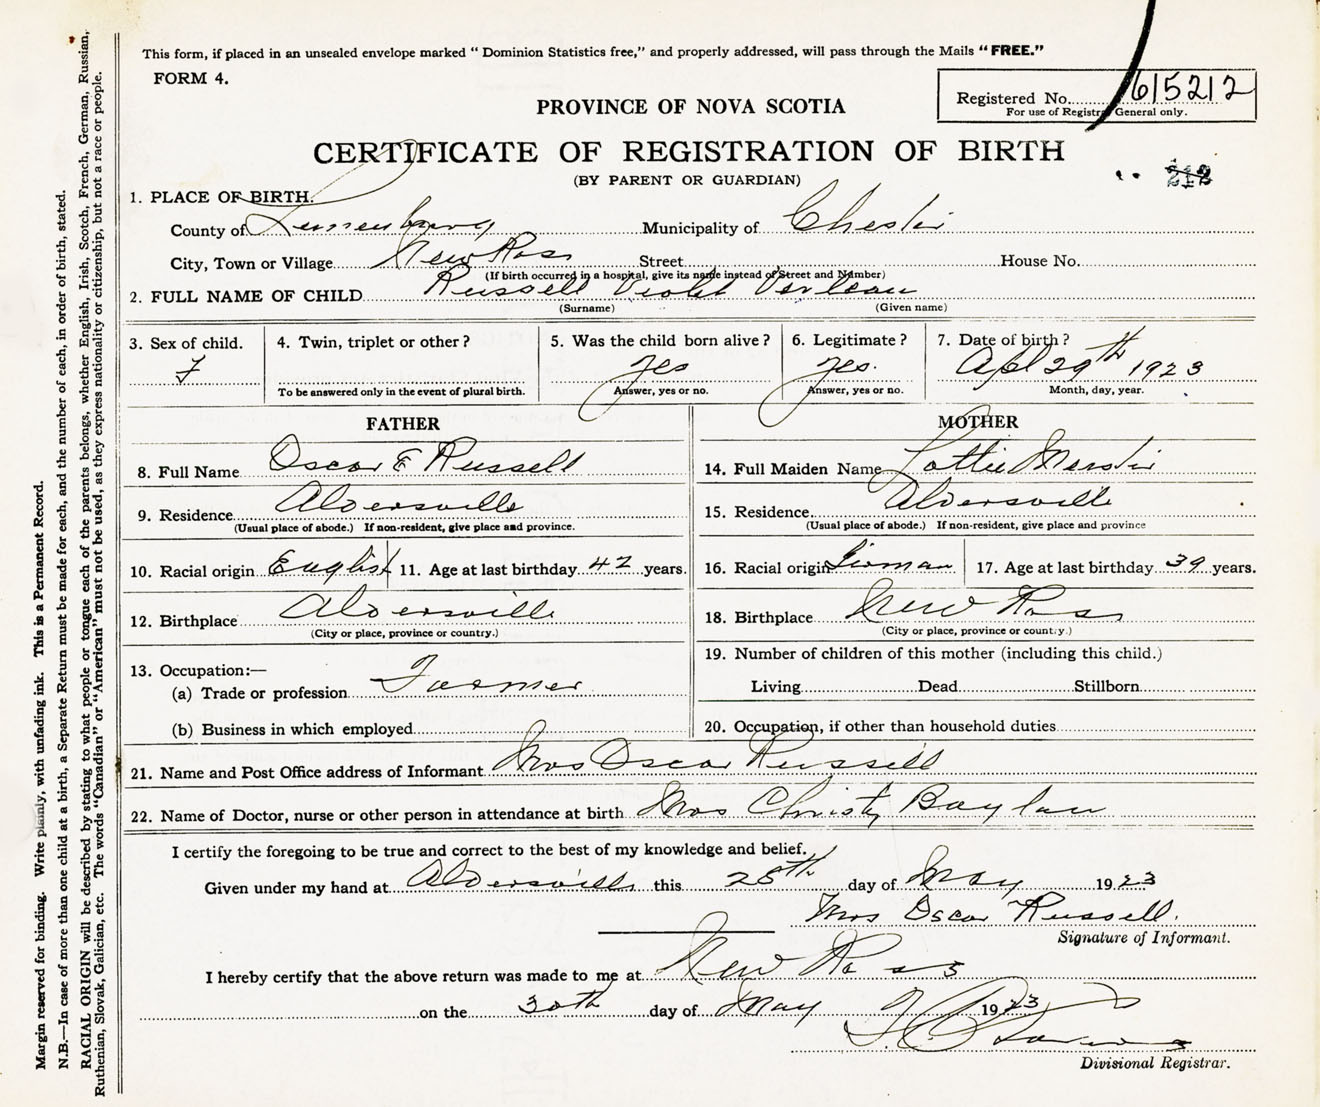 This form, if placed in an unsealed envelope marked “ Dominion Statistics free,” and properly addressed, will pass through the Mails “ FREE.”
FORM 4.
Registered No. 615212
For use of Registrar General only.
PROVINCE OF NOVA SCOTIA
CERTIFICATE OF REGISTRATION OF BIRTH
(BY PARENT OR GUARDIAN)
212
1. PLACE OF BIRTH.
County of Lunenburg Municipality of Chester
City, Town or Village New Ross Street House No.
(If birth occurred in a hospital, give its name instead of Street and Number)
2. FULL NAME OF CHILD Russell Violet
(Surname) (Given name)
3. Sex of child. 4. Twin, triplet or other ? 5. Was the child born alive ? 6. Legitimate ? 7. Date of birth ?
F yes yes. Apl 29th 1923
To be answered only in the event of plural birth. Answer, yes or no. Answer, yes or no. Month, day, year.
FATHER MOTHER
8. Full Name Oscar E Russell
14. Full Maiden Name Lottie
9. Residence Aldersville
(Usual place of abode.) If non-resident, give place and province.
15. Residence Aldersville
(Usual place of abode.) If non-resident, give place and province
10. Racial origin English 11. Age at last birthday 42 years.
16. Racial origin German 17. Age at last birthday 39 years.
12. Birthplace Aldersville
(City or place, province or country.)
18. Birthplace New Ross
(City or place, province or country.)
13. Occupation:—
(a) Trade or profession Farmer
(b) Business in which employed
19. Number of children of this mother (including this child.)
Living Dead Stillborn
20. Occupation, if other than household duties
21. Name and Post Office address of Informant Mrs Oscar Russell
22. Name of Doctor, nurse or other person in attendance at birth Mrs Christy
I certify the foregoing to be true and correct to the best of my knowledge and belief.
Given under my hand at Aldersville this 25th day of May 1923
Mrs Oscar Russell.
Signature of Informant.
I hereby certify that the above return was made to me at New Ross
on the 30th day of May 1923
Divisional Registrar.
Margin reserved for binding. Write plainly, with unfading ink. This is a Permanent Record.
N.B.—In case of more than one child at a birth, a Separate Return must be made for each, and the number of each, in order of birth, stated.
RACIAL ORIGIN will be described by stating to what people or tongue each of the parents belongs, whether English, Irish, Scotch, French, German, Russian,
Ruthenian, Slovak, Galician, etc. The words “Canadian” or “American” must not be used, as they express nationality or citizenship, but not a race or people.